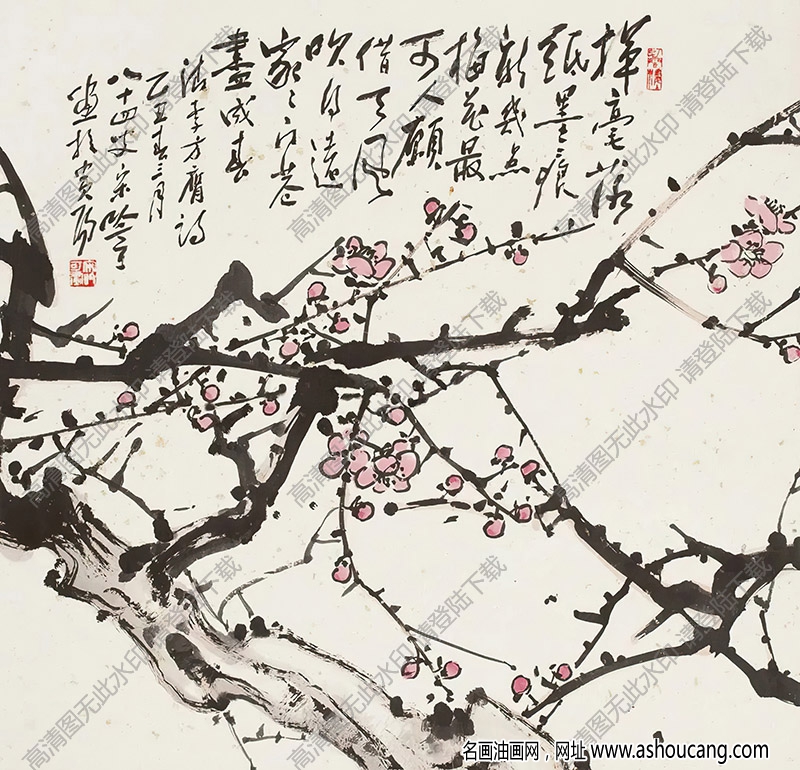 揮毫落
紙墨痕
新幾点
梅花最
可人願
借天风
吹得遠
家々门巷
盡成春
清李方膺诗
乙丑春三月
八十四叟宋吟可
画於贵阳
高清图无此水印 请登陆下载
名画油画网，网址 www.ashoucang.com